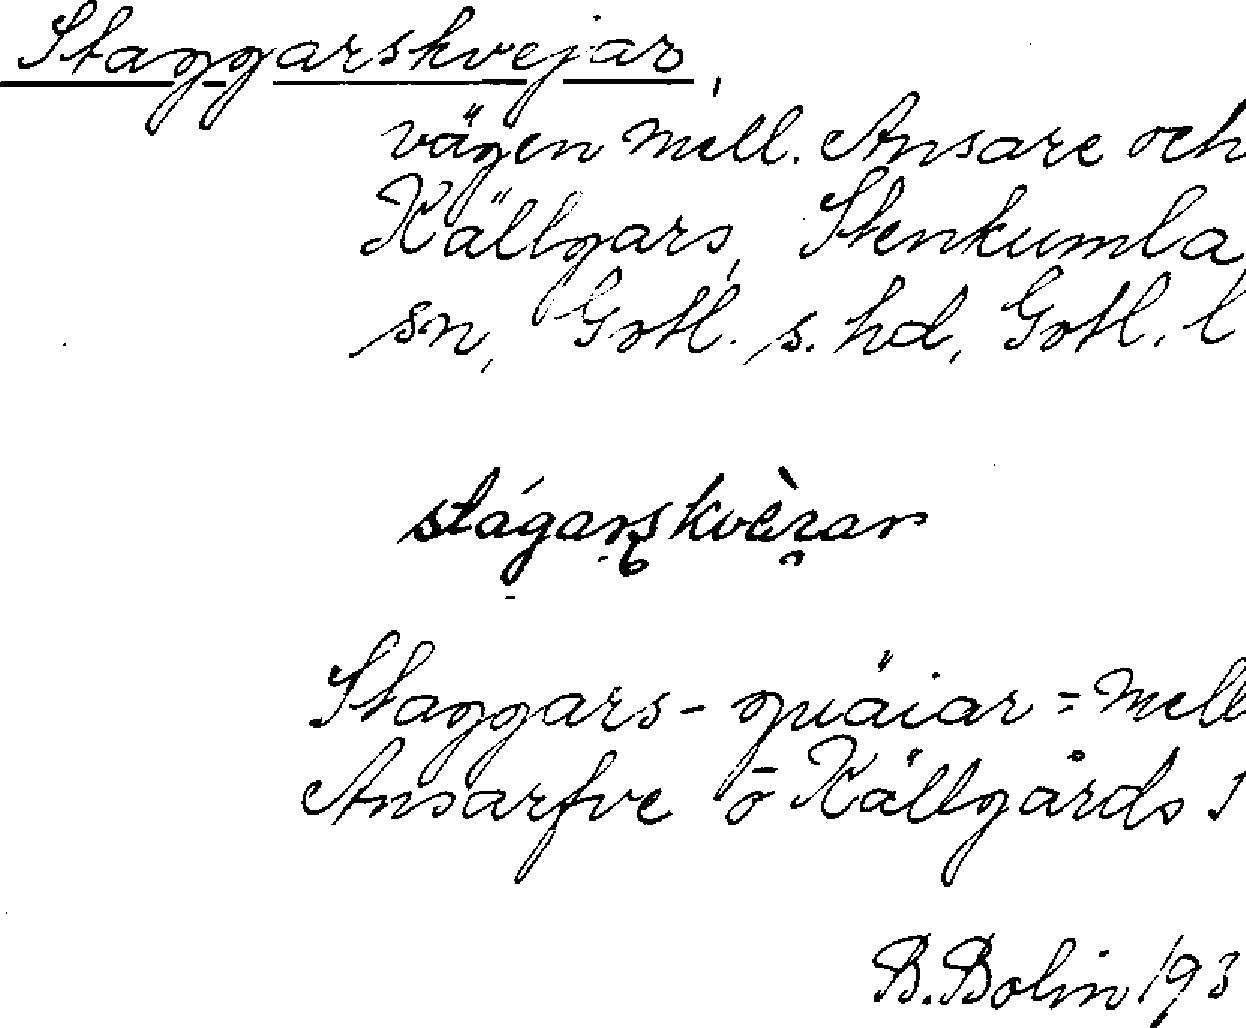 Staggarskvejar,
vägen mell. Ansare och
Källgars, Stenkumla
sn, Gotl. s. hd, Gotl. l
Staggars- quäiar = mell
Ansarfve o̅ Källgårds 1
B. Bolin 193